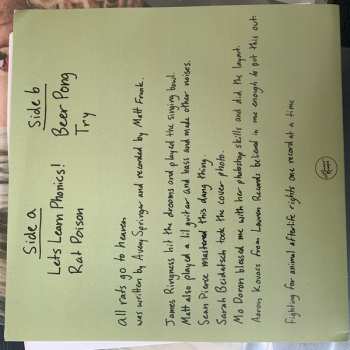 Side a
Lets Learn Phonics!
Rat Poison
Side b
Beer Pong
Try
all rats go to heaven
was written by Avery Springer and recorded by Matt Frank.
James Ringness hit the drooms and played the singing bowl.
Matt also played a lil guitar and bass and made other noises.
Sean Pierce mastered this dang thing.
Sarah took the cover photo.
Mo Doron blessed me with her photoshop skills and did the layout.
Aaron Kovacs from Lauren Records believed in me enough to put this out.
fighting for animal afterlife rights one record at a time